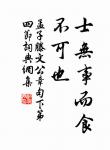 士無事而食
不可也
孟子滕文公章句下第
四節詞典網集